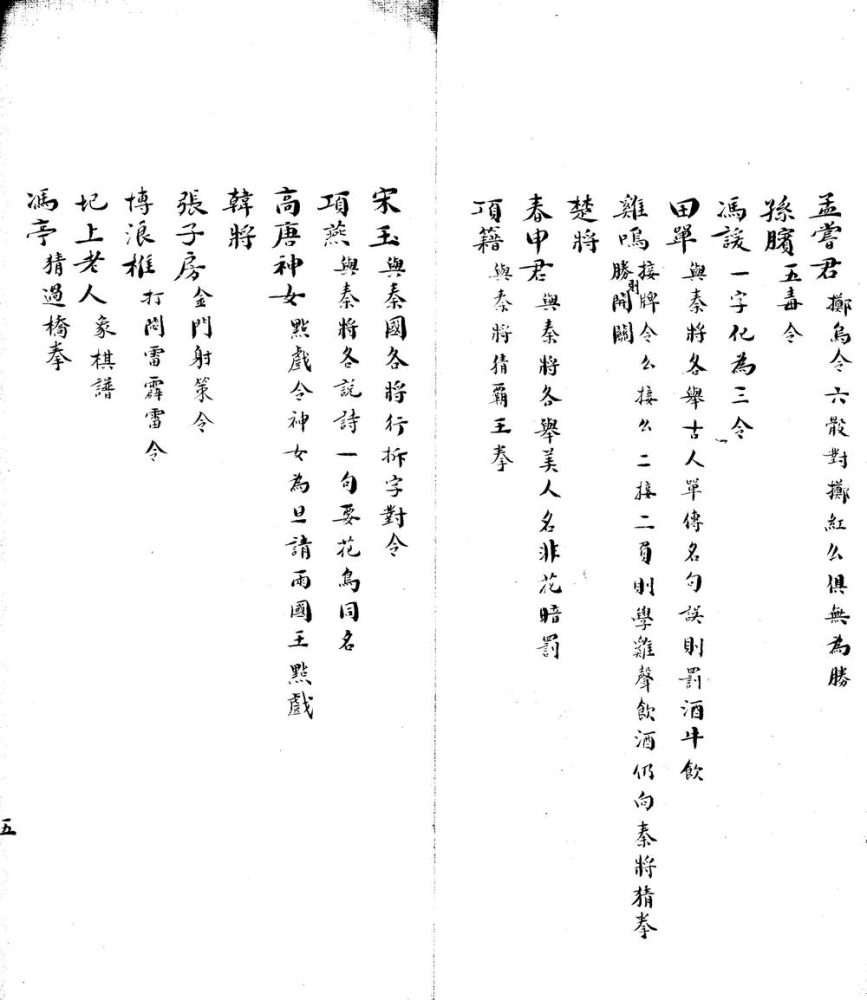 孟嘗君 擲烏令六骰對擲紅么俱無為勝
孫臏 五毒令
馮諼 一字化為三令
田單 與秦將各舉古人單傳名句誤則罰酒牛飲
雞鳴 接牌令么接么二接二負則學雞聲飲酒仍向秦將猜拳
勝則開關
楚將
春申君 與秦將各舉美人名非花暗罰
項籍 與秦將猜霸王拳
宋玉 與秦國各將行拆字對令
項燕 與秦將各說詩一句要花鳥同名
高唐神女 點戲令神女為旦請兩國王點戲
韓將
張子房 金門射策令
博浪椎 打問雷霹雷令
圮上老人 象棋譜
馮亭 猜過橋拳
五